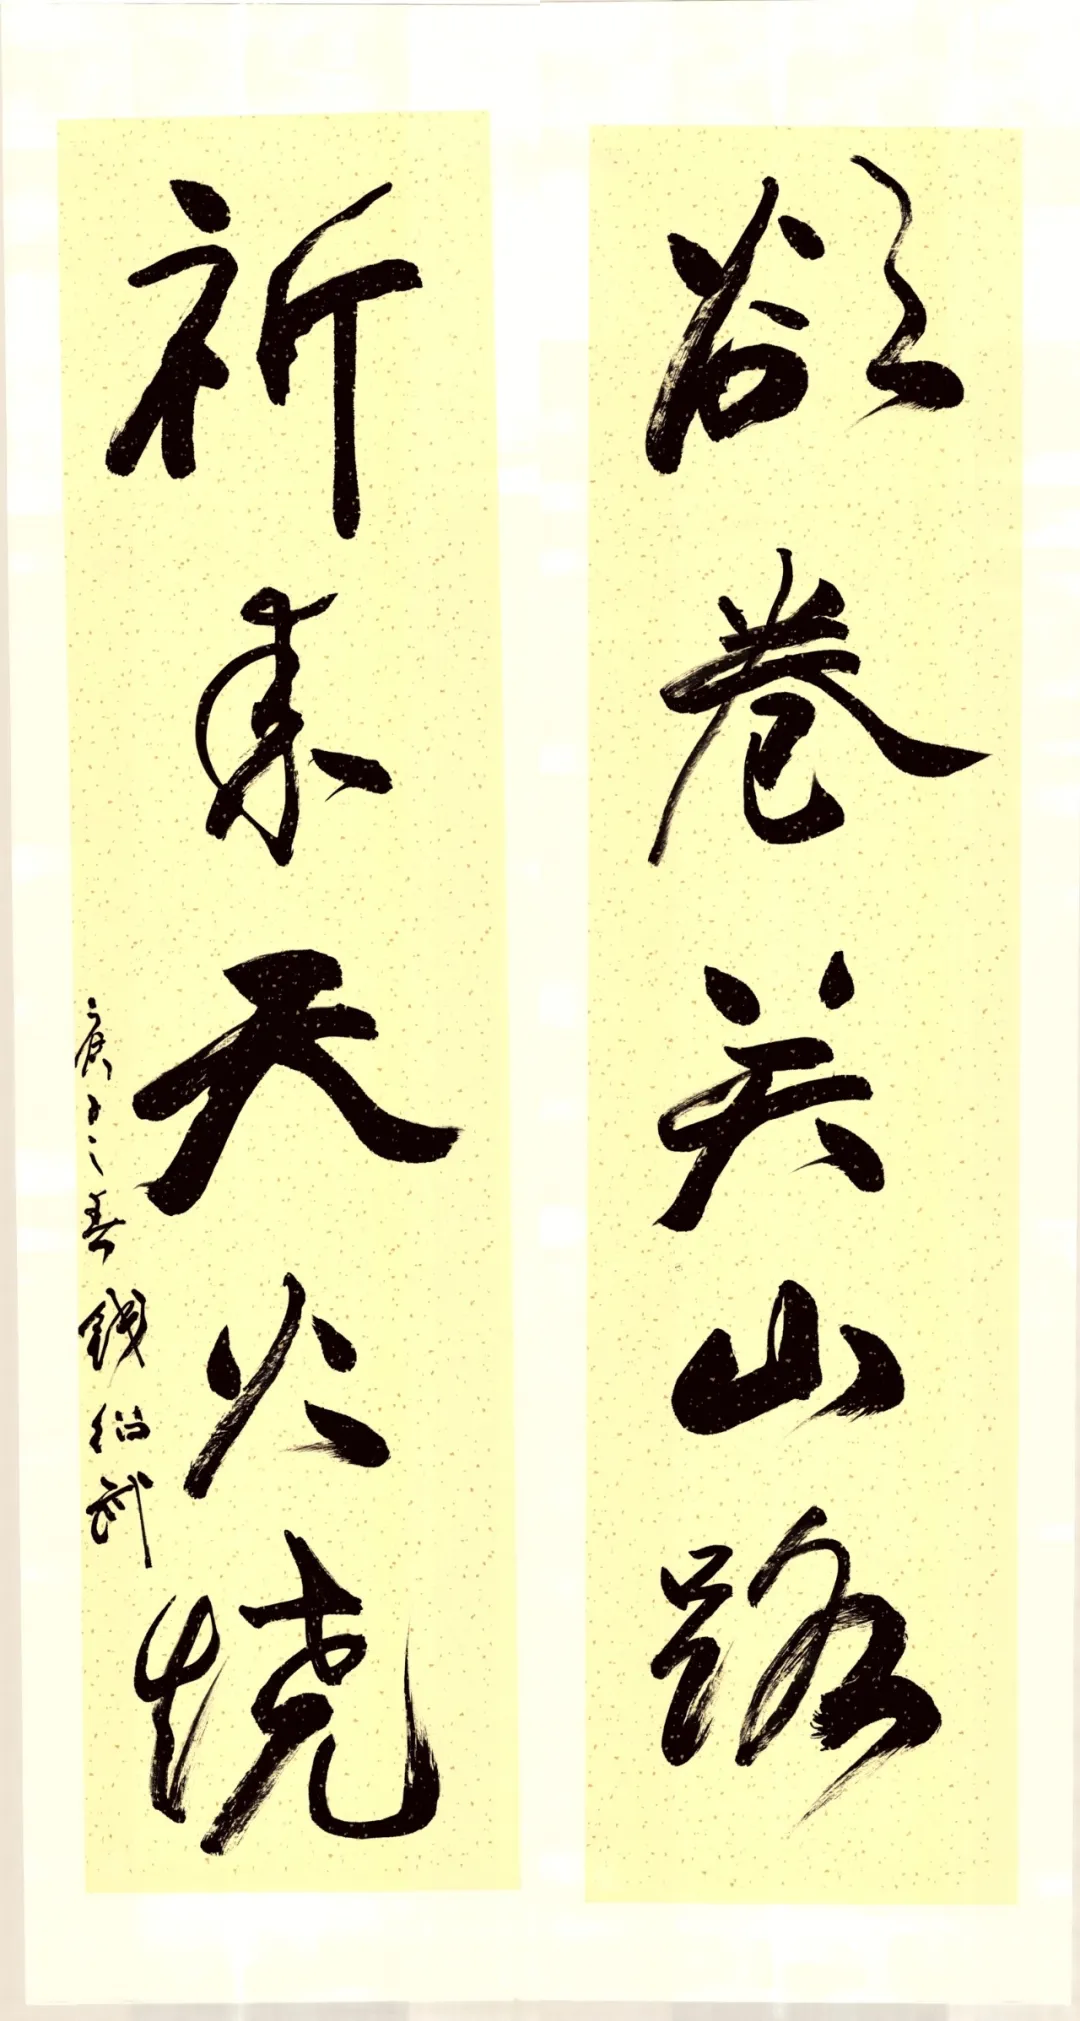 欲卷关山路
祈来天火烧
庚子之春 錢紹武